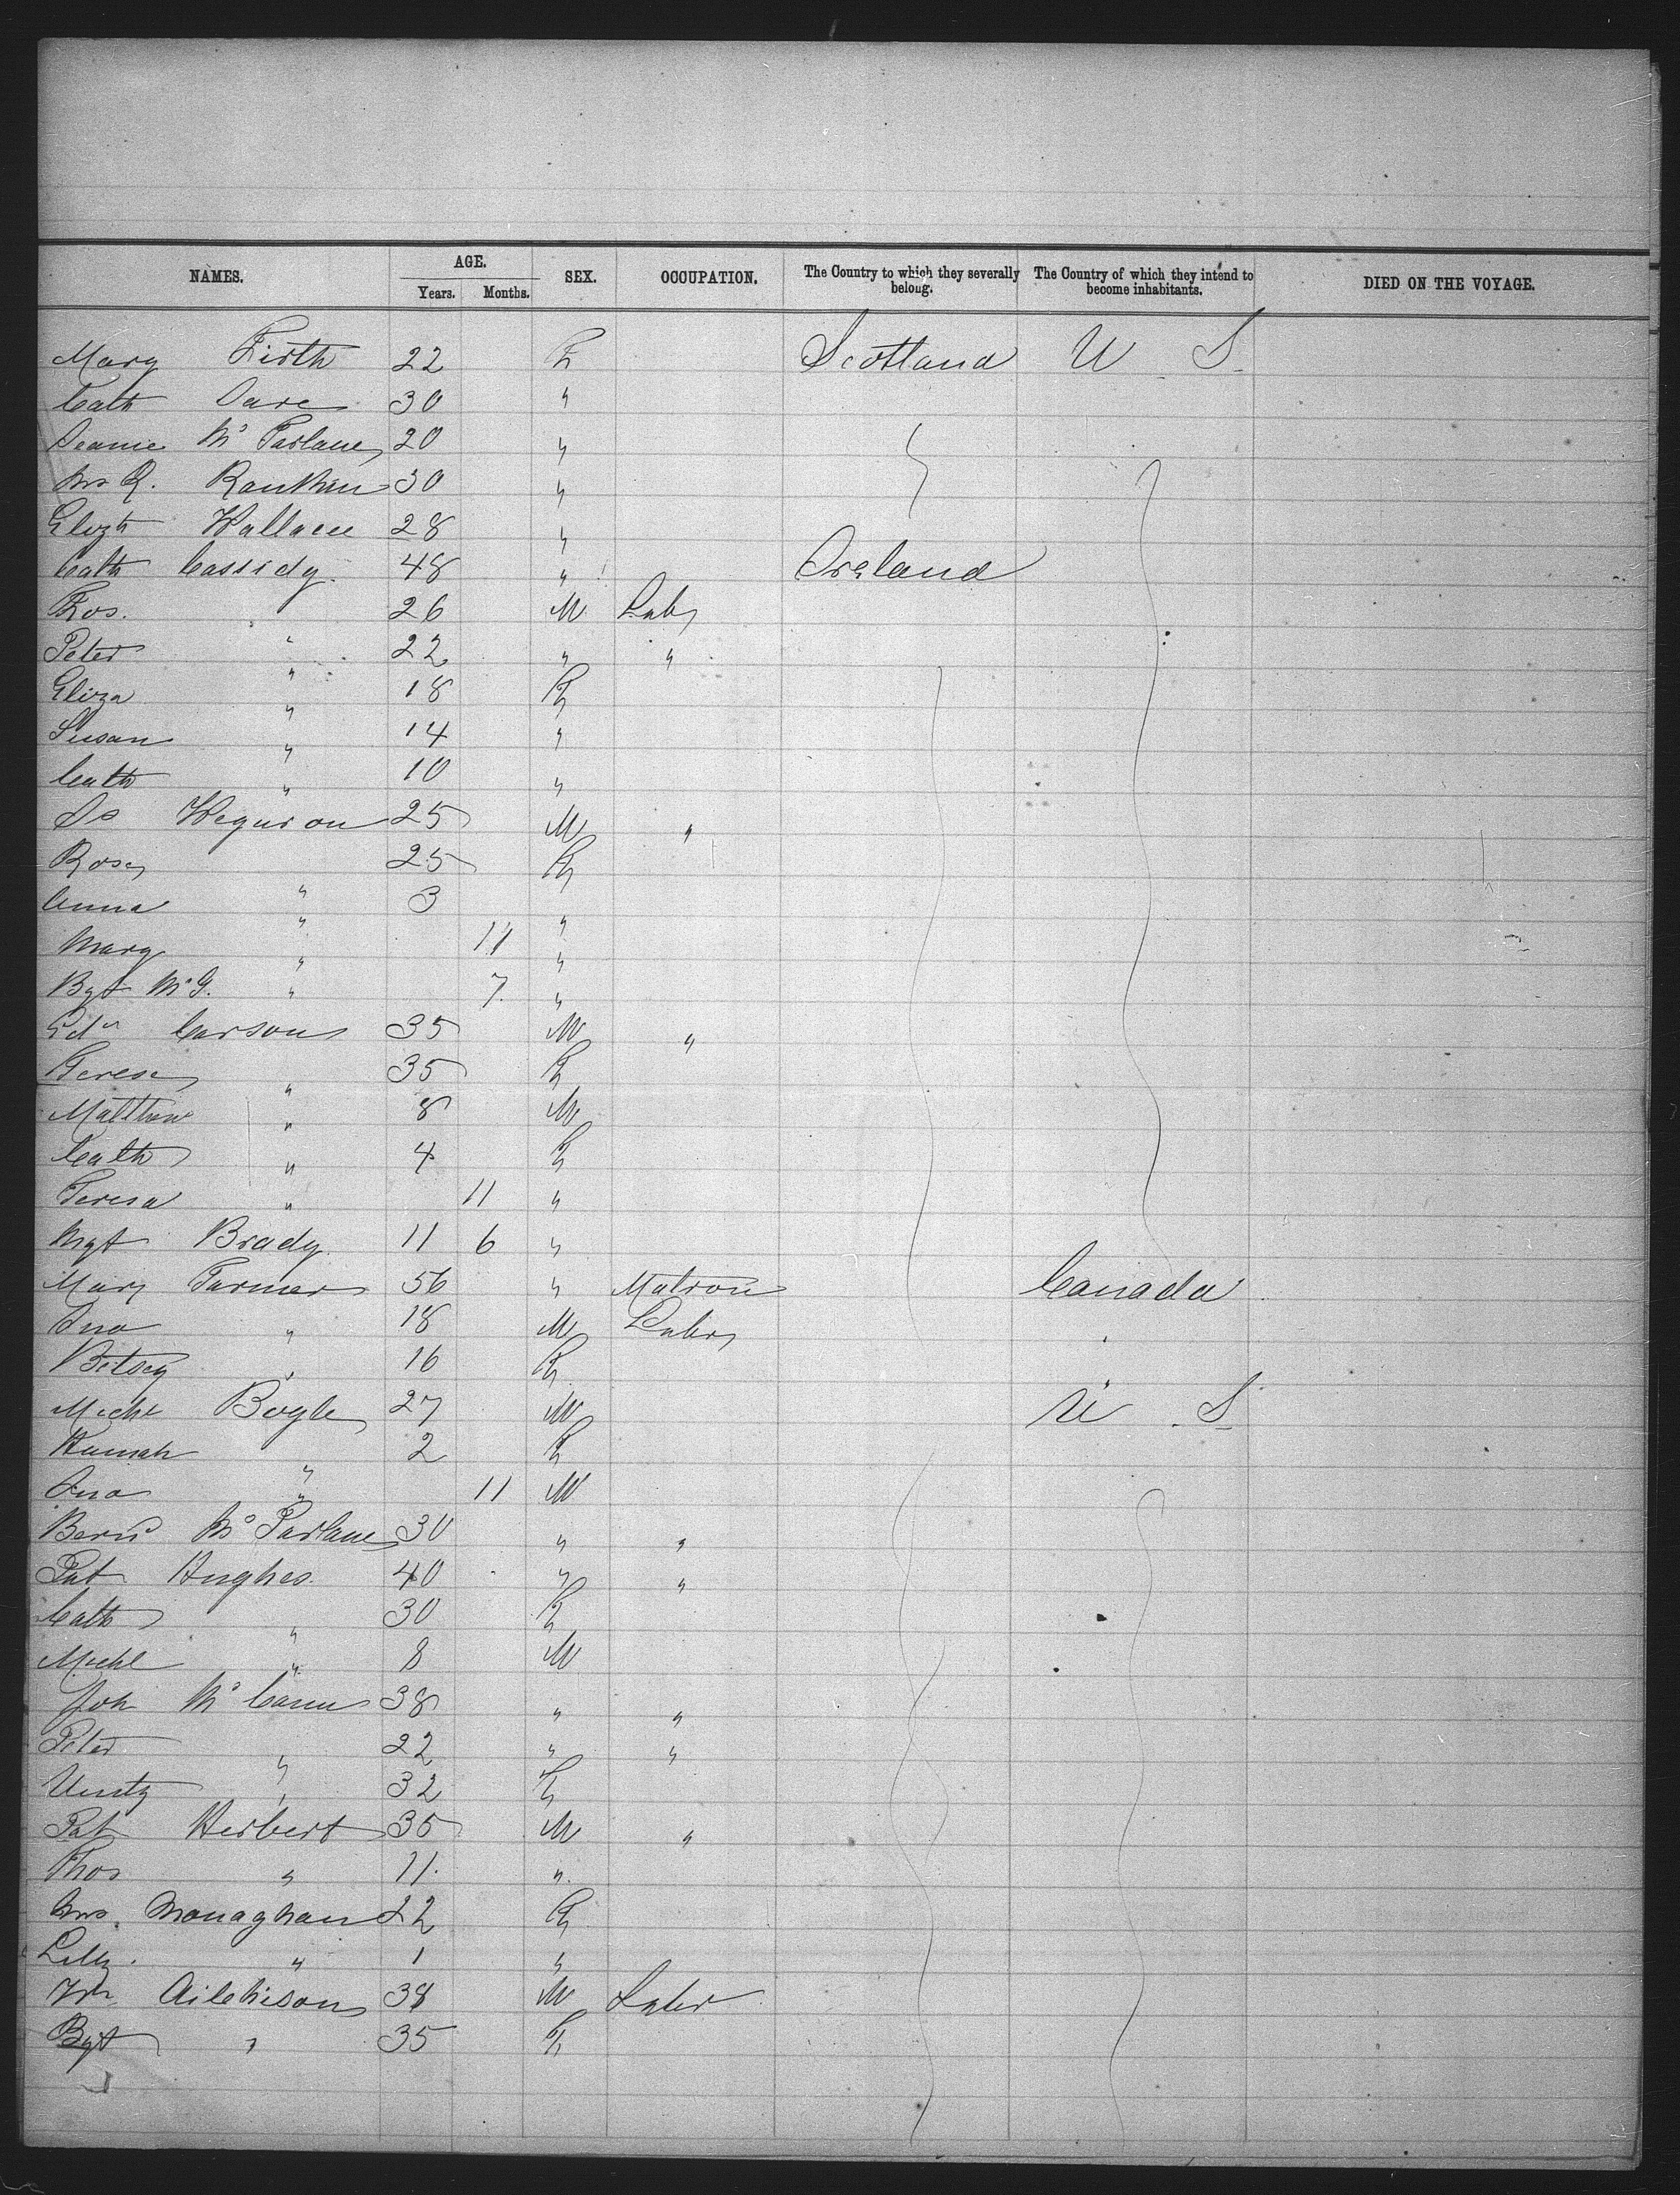 NAMES. AGE. Years. Months. SEX. OCCUPATION. The Country to which they severally belong. The Country of which they intend to become inhabitants. DIED ON THE VOYAGE.
Mary Firth 22 F Scotland U S
Cath Dare 30 "
Jeanie Mc Farlane 20 "
Mrs R. Rankin 30 "
Elizth Wallace 28 "
Cath Cassidy 48 " Ireland
Thos. " 26 M Labr
Peter " 22 " "
Eliza " 18 F
Susan " 14 "
Cath " 10 "
Js 25 M "
Rose " 25 F
Anna " 3 "
Mary " 11 "
Bgt McG. " 7 "
Edw Carson 35 M "
Teresa " 35 F
Matthew " 8 M
Cath " 4 F
Teresa " 11 "
Mgt Brady 11 6 "
Mary Farmer 56 " Matron Canada
Jno " 18 M Labr "
Betsey " 16 F
Michl Boyle 27 M U S
Hannah " 2 F
Jno " 11 M
Bernd Mc Parlane 30 " "
Pat Hughes 40 " "
Cath " 30 F
Michl " 8 M
Joh Mc Cann 38 " "
Peter " 22 " "
" 32 F
Pat Herbert 35 M "
Thos " 11 "
Mrs. Monaghan 22 F
Lilly " 1 "
Wm Aitchison 38 M Labr
Bgt " 35 F